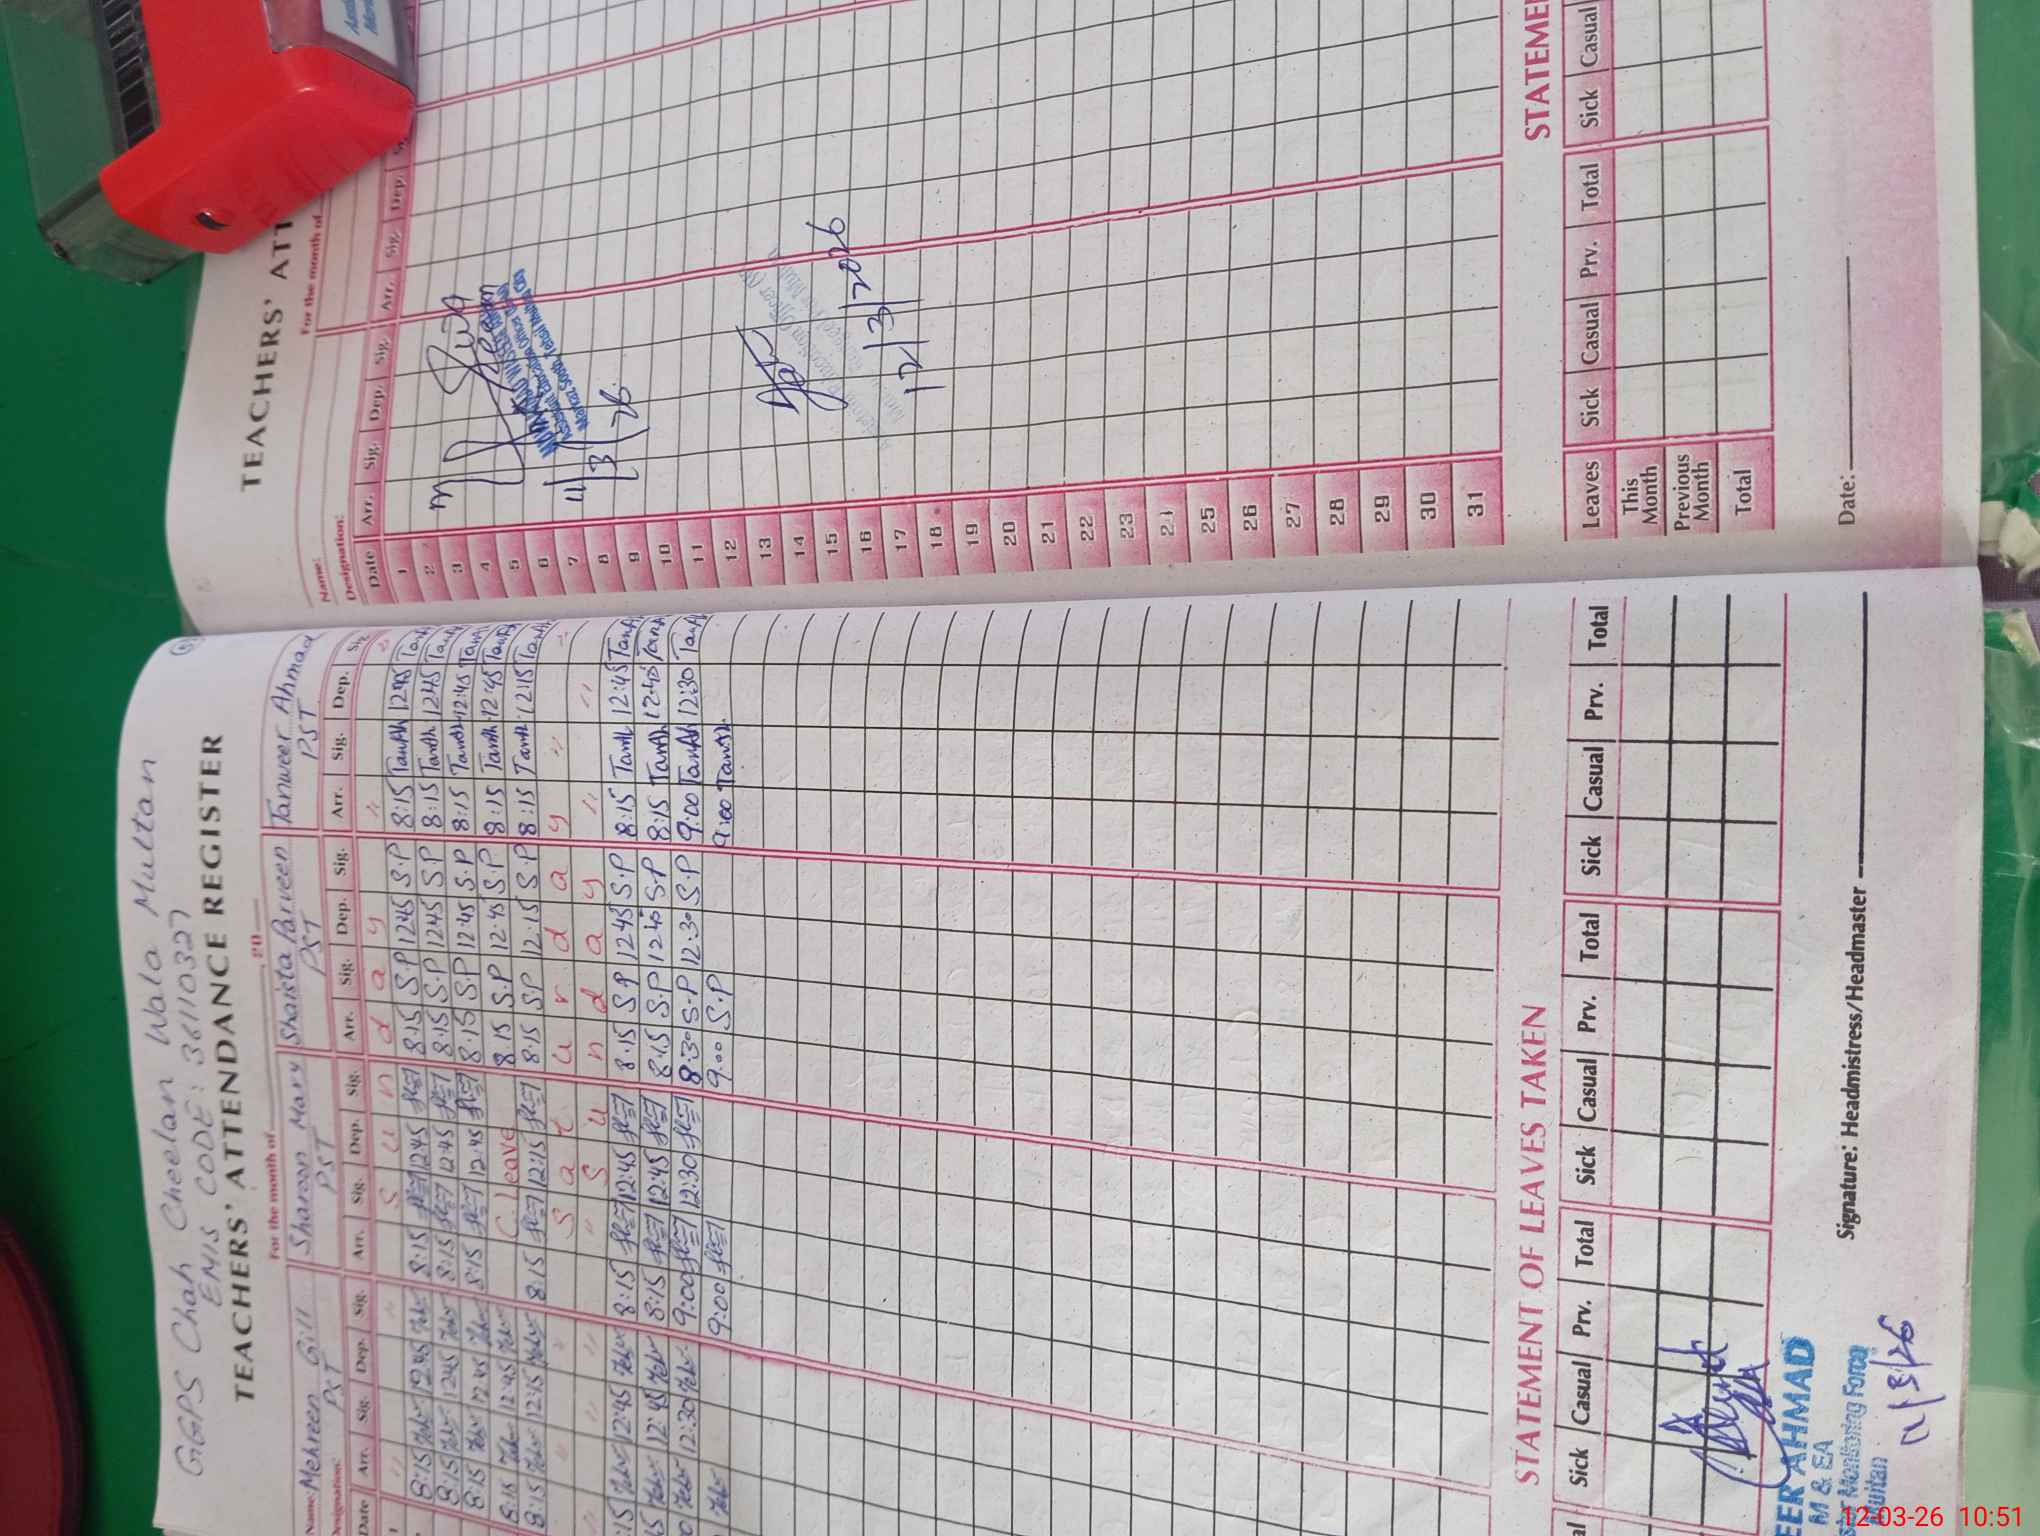 GGPS Chah Cheelan Wala Multan
EMIS CODE: 36110327
TEACHERS' ATTENDANCE REGISTER
For the month of 20
Name: Mehreen Gill Sharoon Mary Shaista Parveen Tanweer Ahmad
Designation: PST PST PST PST
Date Arr. Sig. Dep. Sig. Arr. Sig. Dep. Sig. Arr. Sig. Dep. Sig. Arr. Sig. Dep. Sig.
" " S u n d a y "
8:15 12:45 8:15 12:45 8:15 S.P 12:45 S.P 8:15 12:45
8:15 12:45 8:15 12:45 8:15 S.P 12:45 S.P 8:15 12:45
8:15 12:45 8:15 12:45 8:15 S.P 12:45 S.P 8:15 12:45
8:15 12:45 C. leave 8:15 S.P 12:45 S.P 8:15 12:45
8:15 12:15 8:15 12:15 8:15 S.P 12:15 S.P 8:15 12:15
" " S a t u r d a y "
" " " S u n d a y " "
:15 12:45 8:15 12:45 8:15 S.P 12:45 S.P 8:15 12:45
12:45 8:15 12:45 8:15 S.P 12:45 S.P 8:15 12:45
12:30 9:00 12:30 8:30 S.P 12:30 S.P 9:00 12:30
9:00 9:00 S.P 9:00
STATEMENT OF LEAVES TAKEN
Sick Casual Prv. Total Sick Casual Prv. Total Sick Casual Prv. Total
EER AHMAD
M & EA
Monitoring Force
Multan
11/3/26
Signature: Headmistress/Headmaster
TEACHERS' ATT
For the month of
Name:
Designation:
Date Arr. Sig. Dep. Sig. Arr. Sig. Dep.
1
2
3
4
5
6
7
8
9
10
11
12
13
14
15
16
17
18
19
20
21
22
23
24
25
26
27
28
29
30
31
Assistant Education Officer
Markaz South, Tehsil Multan
11/3/26
12/3/2026
STATEME
Leaves Sick Casual Prv. Total Sick Casual
This Month
Previous Month
Total
Date:
12-03-26 10:51